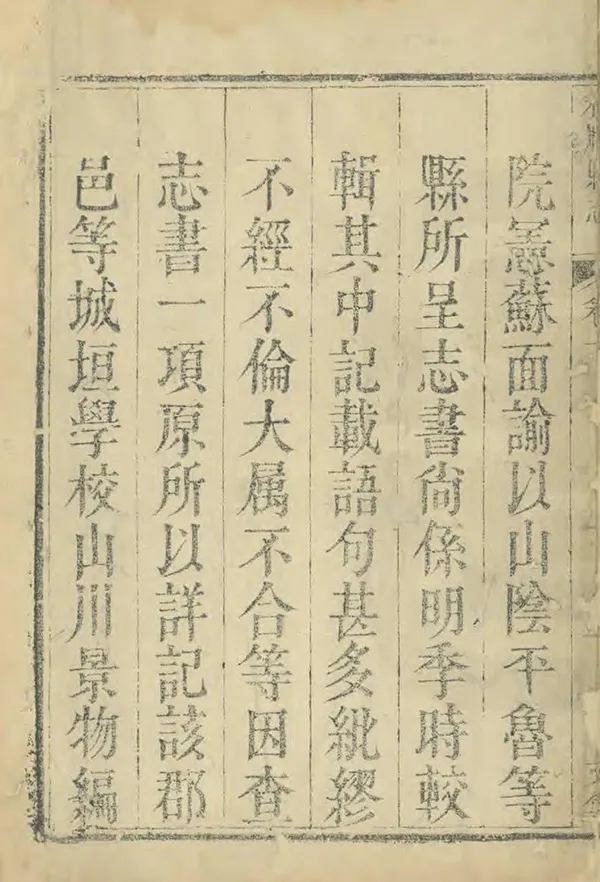 院憲蘇面諭以山陰平魯等
縣所呈志書尙係明季時較
輯其中記載語句甚多紕繆
不經不倫大属不合等因查
志書一項原所以詳記該郡
邑等城垣學校山川景物編